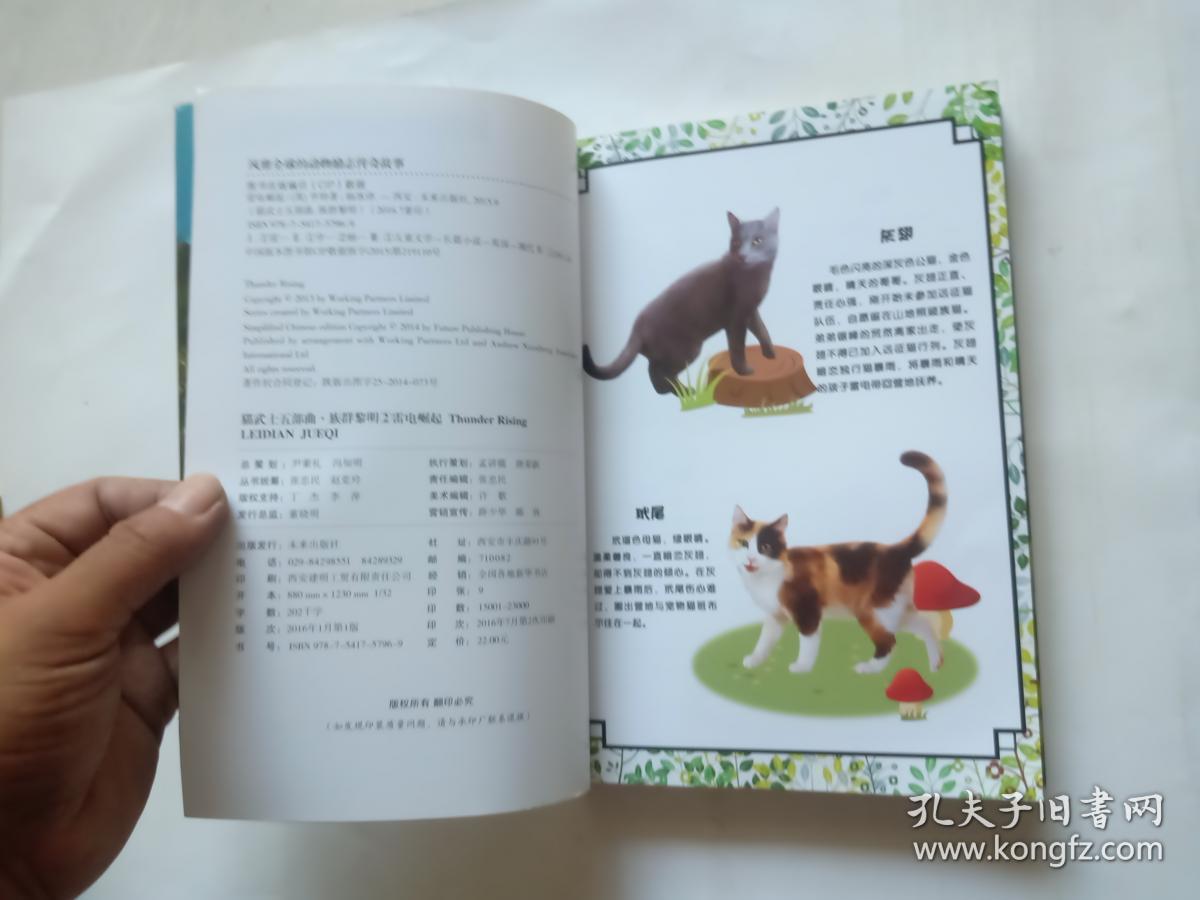 风靡全球的动物励志传奇故事
图书在版编目（CIP）数据
ISBN 978-7-5417-5796-9
中国版本图书馆CIP数据核字(2015)第219116号
Thunder Rising
Copyright © 2013 by Working Partners Limited
Series created by Working Partners Limited
Simplified Chinese edition Copyright © 2014 by Future Publishing House
Published by arrangement with Working Partners Ltd and Andrew Nurnberg
International Ltd
All rights reserved.
著作权合同登记：陕版出图字25-2014-073号
猫武士五部曲·族群黎明2雷电崛起 Thunder Rising
LEIDIAN JUEQI
总 策 划：尹秉礼 冯知明
执行策划：孟讲儒
丛书统筹：张忠民 赵党玲
责任编辑：张忠民
版权支持：丁 杰 李 萍
美术编辑：许 歌
发行总监：董晓明
营销宣传：薛少华 陈 欣
出版发行：未来出版社
社 址：西安市丰庆路91号
电 话：029-84298551 84289329
邮 编：710082
印 刷：西安建明工贸有限责任公司
经 销：全国各地新华书店
开 本：880 mm×1230 mm 1/32
印 张：9
字 数：202千字
印 数：15001-23000
版 次：2016年1月第1版
印 次：2016年7月第2次印刷
书 号：ISBN 978-7-5417-5796-9
定 价：22.00元
版权所有 翻印必究
（如发现印装质量问题，请与承印厂联系退换）
灰翅
毛色闪亮的深灰色公猫，金色
眼睛，晴天的哥哥。灰翅正直、
责任心强，刚开始未参加远征猫
队伍，自愿留在山地照顾族猫。
弟弟锯峰的贸然离家出走，使灰
翅不得已加入远征猫行列。灰翅
暗恋独行猫暴雨，将暴雨和晴天
的孩子雷电带回营地抚养。
玳尾
玳瑁色母猫，绿眼睛。
温柔善良，一直暗恋灰翅，
却得不到灰翅的倾心。在灰
翅爱上暴雨后，玳尾伤心难
过，搬出营地与宠物猫班布
尔住在一起。
孔夫子旧书网
www.kongfz.com